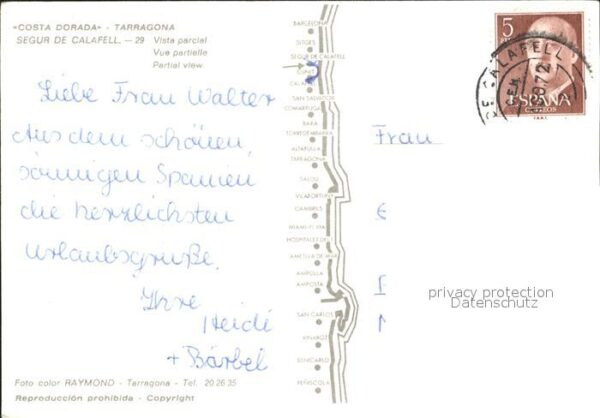 «COSTA DORADA» - TARRAGONA
SEGUR DE CALAFELL. — 29 Vista parcial
Vue partielle
Partial view
Liebe Frau Walter
Aus dem schönen,
sonnigen Spanien
die herzlichsten
Urlaubsgrüße,
Ihre
Heidi
+ Bärbel
Foto color RAYMOND - Tarragona - Tel. 20 26 35
Reproducción prohibida - Copyright
BARCELONA
SITGES
SEGUR DE CALAFELL
CUNIT
SAN SALVADOR
COMARRUGA
BARA
TORREDEMBARRA
ALTAFULLA
TARRAGONA
SALOU
VILAFORTUNY
CAMBRILS
MIAMI-PLAYA
HOSPITALET DE
AMETLLA DE MAR
AMPOLLA
AMPOSTA
SAN CARLOS
VINAROZ
BENICARLO
PEÑISCOLA
Frau
privacy protection
Datenschutz
5
ESPAÑA
CORREOS
CALAFELL